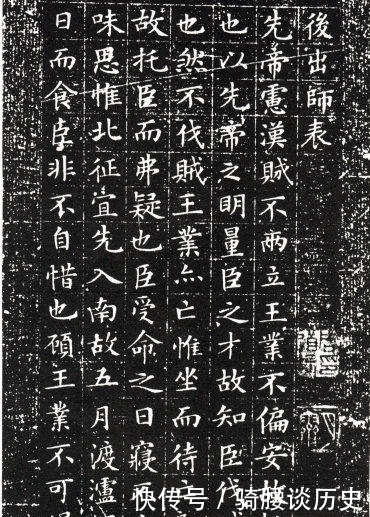 後出師表
先帝慮漢賊不兩立王業不偏安故
也以先帝之明量臣之才故知臣伐
也然不伐賊王業亦亡惟坐而待
故托臣而弗疑也臣受命之日寢
味思惟北征宜先入南故五月渡瀘
日而食臣非不自惜也顧王業不可
快传号/骑腰谈历史